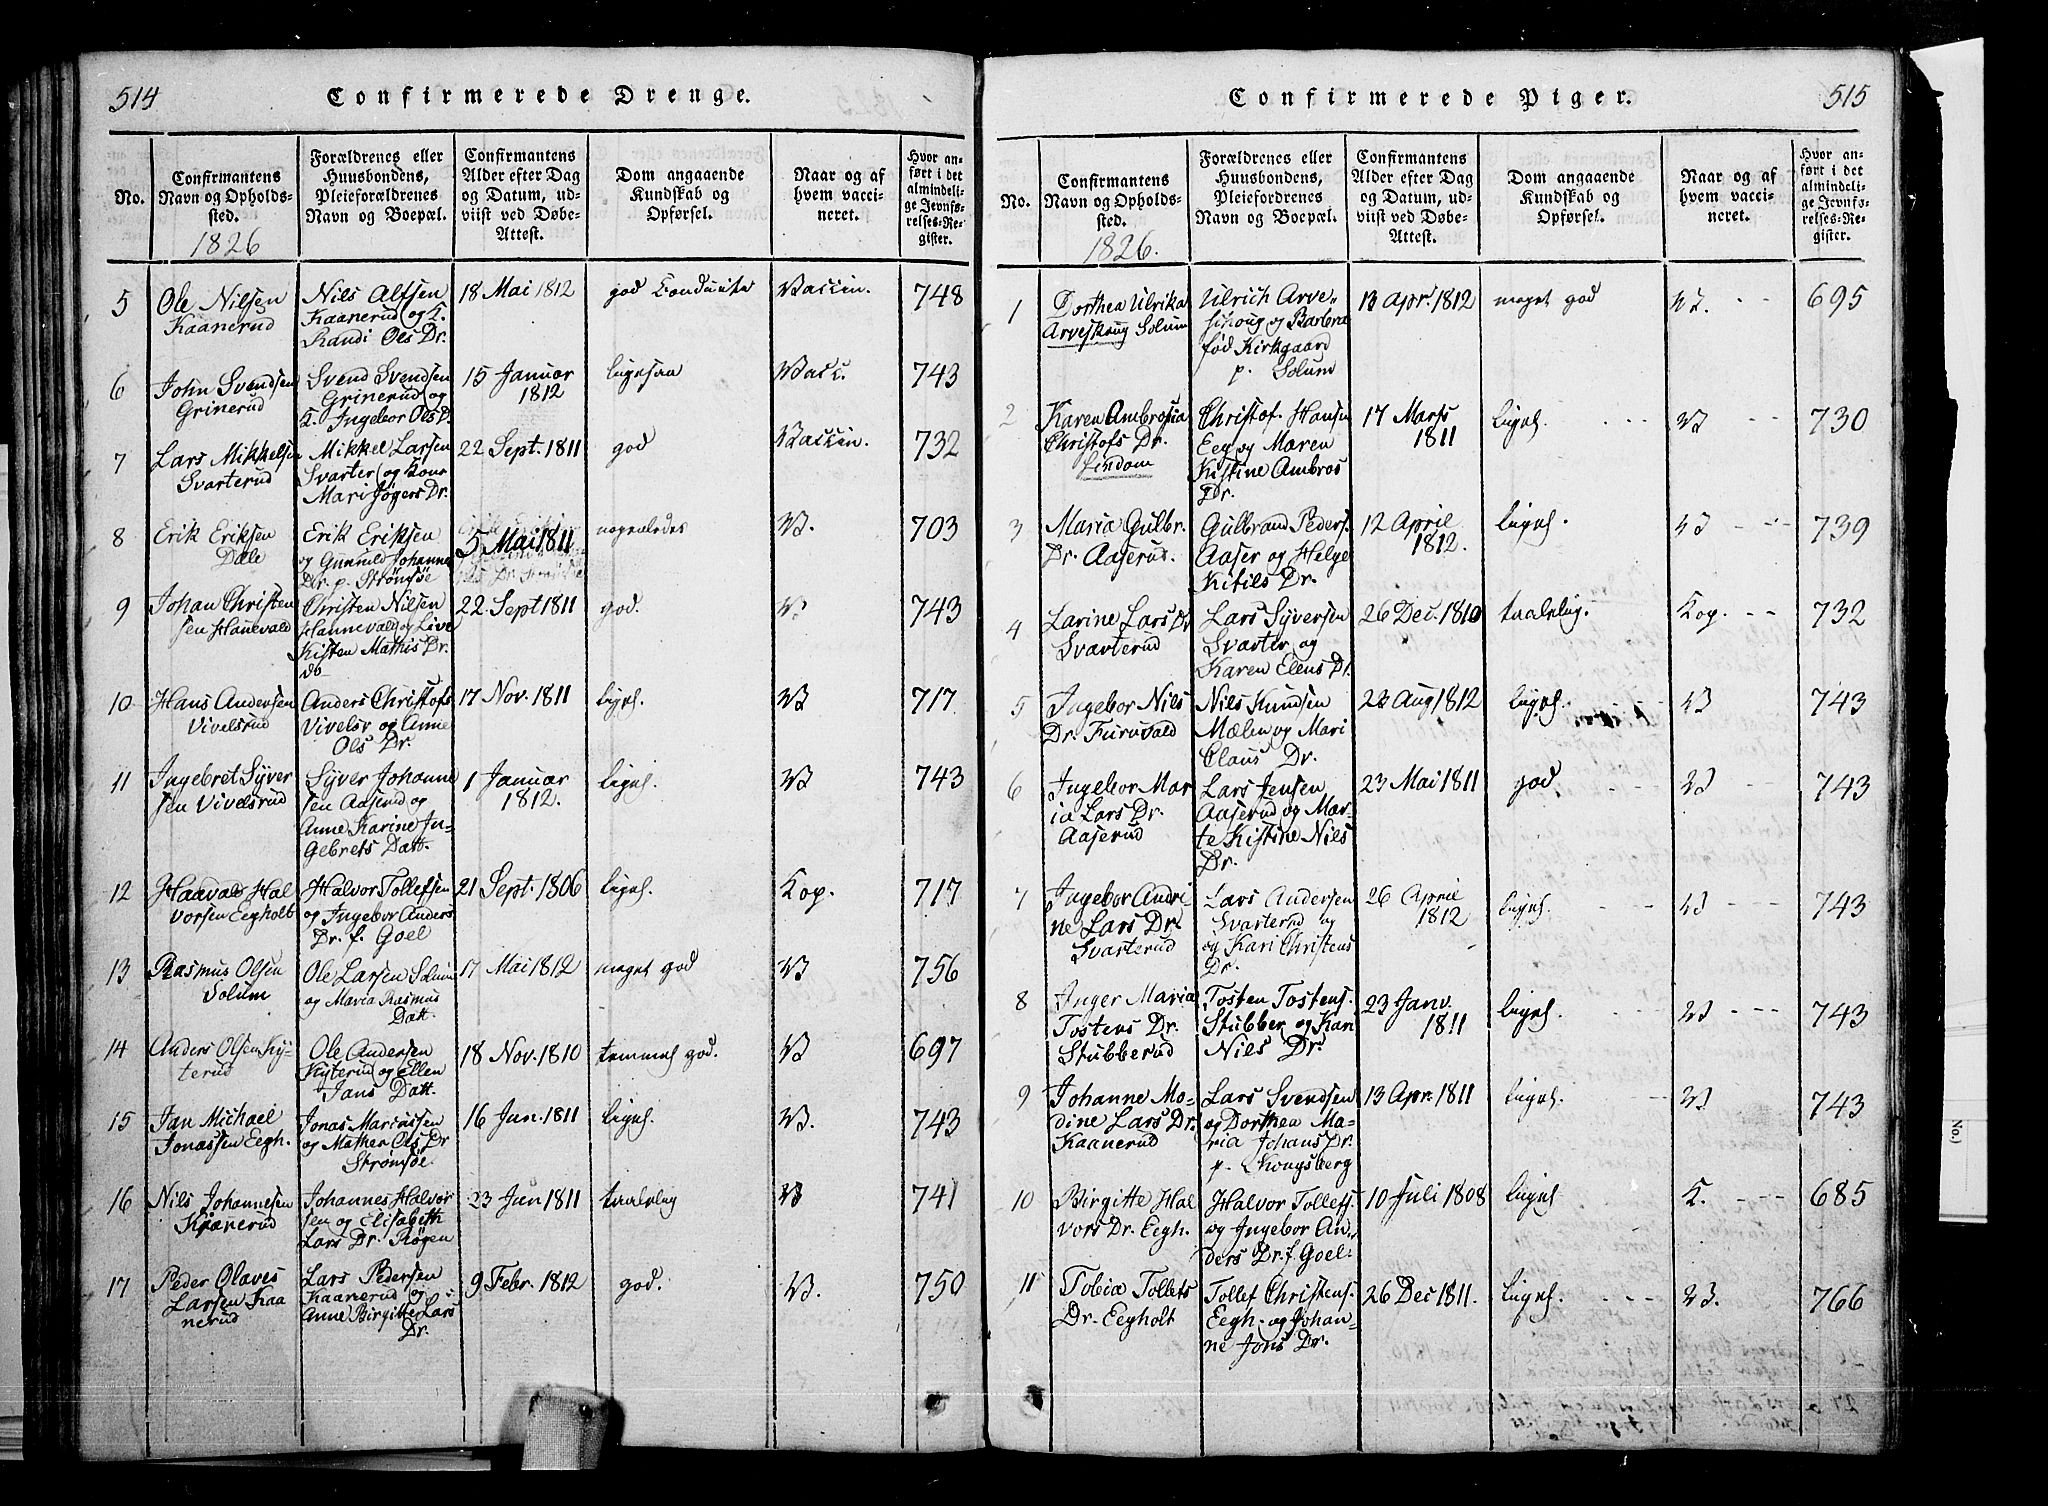 514
Confirmerede Drenge.
No.
Confirmantens
Navn og Opholds-
sted.
1826
Forældrenes eller
Huusbondens,
Pleieforældrenes
Navn og Boepæl.
Confirmantens
Alder efter Dag
og Datum, ud-
viist ved Døbe-
Attest.
Dom angaaende
Kundskab og
Opførsel.
Naar og af
hvem vacci-
neret.
Hvor an-
ført i det
almindeli-
ge Jevnfø-
relses-Re-
gister.
5
Ole Nilsen
Kaanerud
Nils Alfsen
Kaanerud og K.
Randi Ols Dr.
18 Mai 1812
god Conduite
Vaccin.
748
6
John Svendsen
Grinerud
Svend Svendsen
Grinerud og
K. Ingebor Ols D.
15 Januar
1812
ligesaa
Vacc.
743
7
Lars Mikkelsen
Svarterud
Mikkel Larsen
Svarter og Kone
Mari Jögers Dr.
22 Sept. 1811
god
Vaccin.
732
8
Erik Eriksen
Dale
Erik Eriksen
og Gunnild Johanne
Dr. p. Strömsöe
5 Mai 1811
V.
703
9
Johan Christen
sen Hanevald
Christen Nilsen
Hannevald og Live
Kisten Mathis Dr.
do
22 Sept 1811
god.
V
743
10
Hans Andersen
Vivelsrud
Anders Christofs
Vivelsr og Anne
Ols Dr.
17 Nov. 1811
ligel.
V
717
11
Ingebret Syver
sen Vivelsrud
Syver Johanne
sen Aaserud og
Anne Karine In-
gebrets Datt.
1 Januar
1812.
ligel.
V
743
12
Haavald Hal
vorsen Eegholt
Halvor Tollefsen
og Ingebor Anders
Dr. f. Goel
21 Sept. 1806
ligel.
Kop.
717
13
Rasmus Olsen
Solum
Ole Larsen Solum
og Maria Rasmus
Datt.
17 Mai 1812
meget god
V
756
14
Anders Olsen Ky-
terud
Ole Andersen
Kyterud og Ellen
Jans Datt.
18 Nov. 1810
temmel god.
V
697
15
Jan Michael
Jonassen Eegh.
Jonas Mariussen
og Mathea Ols Dr
Strömsöe
16 Jun. 1811
ligel.
V.
743
16
Nils Johannesen
Kaanerud
Johannes Halvor
sen og Elisabeth
Lars Dr. Rögen
23 Jun 1811
taalelig
V
741
17
Peder Olaves
Larsen Kaa
nerud
Lars Pedersen
Kaanerud og
Anne Birgitte Lars
Dr.
9 Febr. 1812
god.
V.
750
Confirmerede Piger.
515
No.
Confirmantens
Navn og Opholds-
sted.
1826.
Forældrenes eller
Huusbondens,
Pleiefordrenes
Navn og Boepæl.
Confirmantens
Alder efter Dag
og Datum, ud-
viist ved Døbe-
Attest.
Dom angaaende
Kundskab og
Opførsel.
Naar og af
hvem vacci-
neret.
Hvor an-
ført i det
almindeli-
ge Jevnfø-
relses-Re-
gister.
1
Dorthea Ulrika
Arveskoug Solum
Ulrich Arve-
skoug og Barbra
föd Kirkgaard
p. Solum
13 Apr. 1812
meget god
V.
695
2
Karen Ambrosia
Christofs Dr.
Lindom
Christof. Hansen
Eeg og Maren
Kistine Ambros
Dr.
17 Marts
1811
ligel.
V
730
3
Maria Gulbr.
Dr. Aaserud.
Gulbrand Peders.
Aaser og Helge
Kitils Dr.
12 Aprile
1812.
ligel.
V
739
4
Larine Lars Dr
Svarterud
Lars Syversen
Svarter og
Karen Elens Dr.
26 Dec. 1810
taalelig.
Kop.
732
5
Ingebor Nils
Dr. Furuvald
Nils Knudsen
Mælen og Mari
Claus Dr.
23 Aug 1812
ligel.
V
743
6
Ingebor Mar
ia Lars Dr.
Aaserud
Lars Jensen
Aaserud og Mar-
te Kistine Nils
Dr.
23 Mai 1811
god
V
743
7
Ingebor Andri
ne Lars Dr
Svarterud
Lars Andersen
Svarterud og
og Kari Christens
Dr.
26 Aprile
1812
ligel.
V
743
8
Inger Maria
Tostens Dr.
Stubberud
Tosten Tostens.
Stubber og Kari
Nils Dr.
23 Janv.
1811
ligel.
V
743
9
Johanne Mo-
dine Lars Dr.
Kaanerud
Lars Svendsen
og Dorthea Ma-
ria Johans Dr.
p. Kongsberg
13 Apr. 1811
ligel.
V
743
10
Birgitte Hal
vors Dr. Eegh.
Halvor Tollefs.
og Ingebor An-
ders Dr. f. Goel.
10 Juli 1808
ligel.
K.
685
11
Tobia Tollefs
Dr. Eegholt
Tollef Christens.
Eegh. og Johan-
ne Jons Dr.
26 Dec 1811.
ligel.
V.
766
No.)